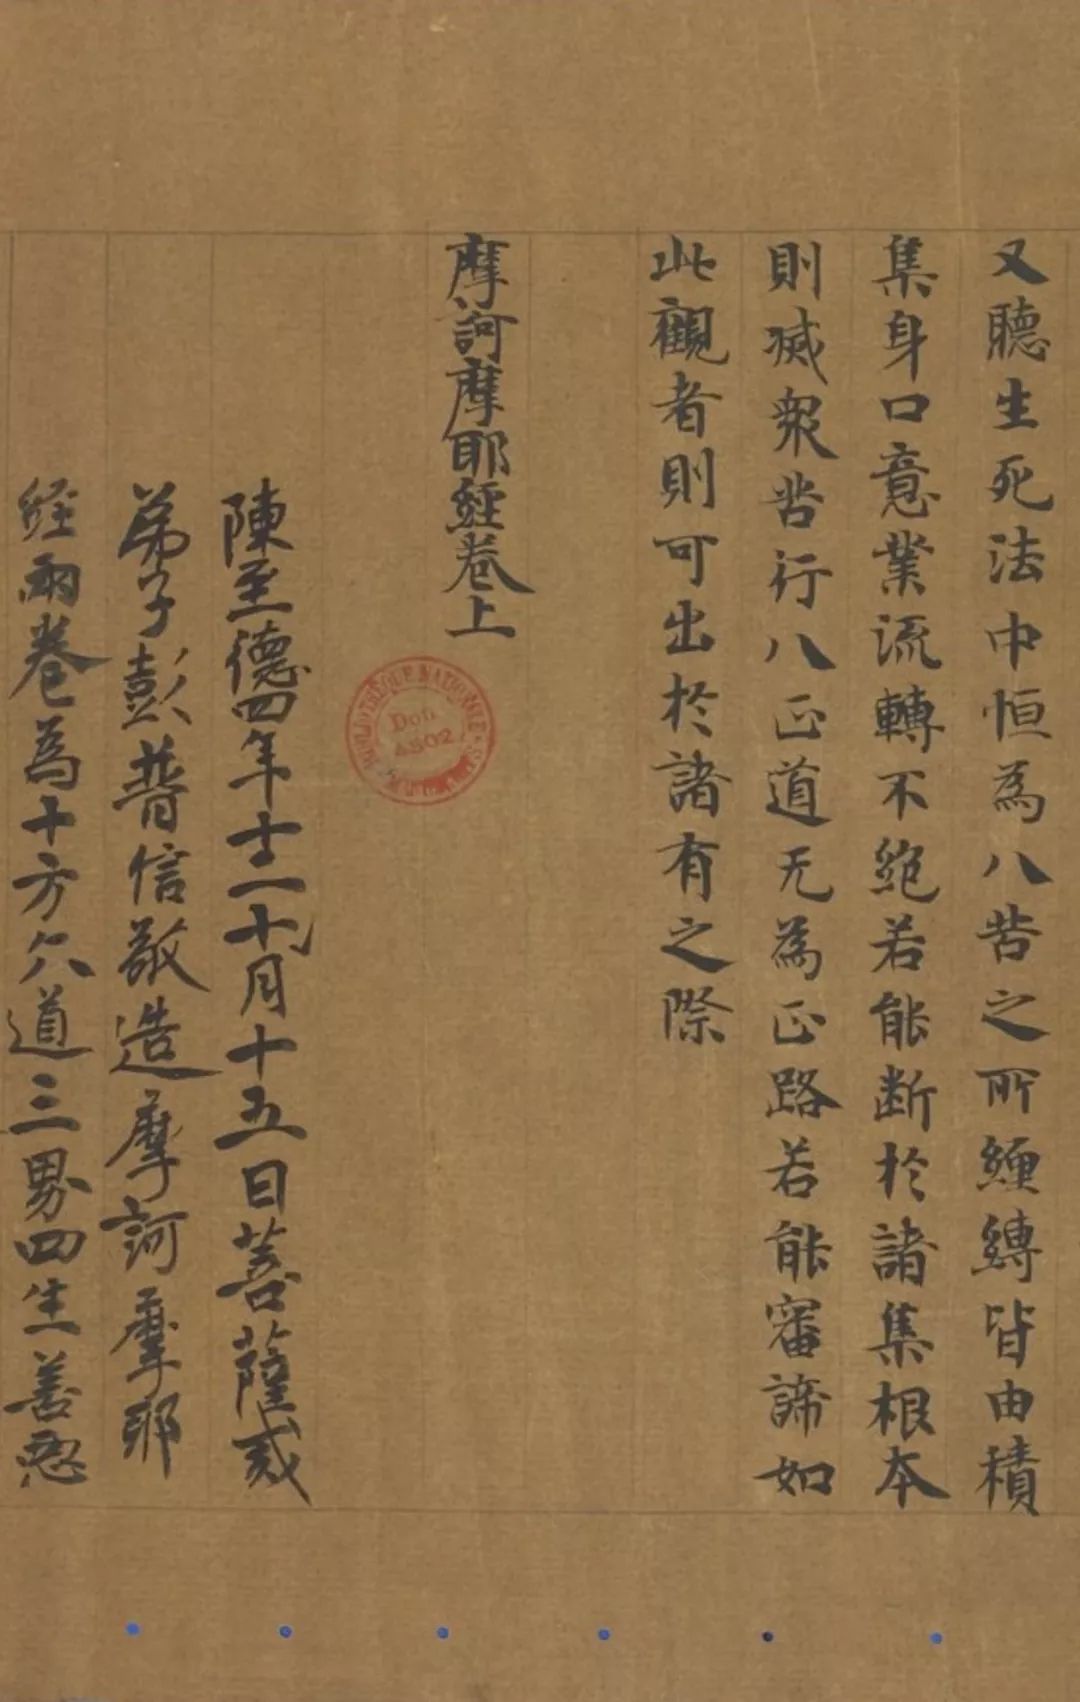 又聽生死法中恒為八苦之所纏縛皆由積
集身口意業流轉不絕若能断於諸集根本
則滅衆苦行八正道无為正路若能審諦如
此觀者則可出於諸有之際
摩訶摩耶經卷上
BIBLIOTHÈQUE NATIONALE
Don
4502
陳至德四年十二月十五日菩薩戒
弟子彭普信敬造摩訶摩耶
經兩卷為十方六道三界四生善惡